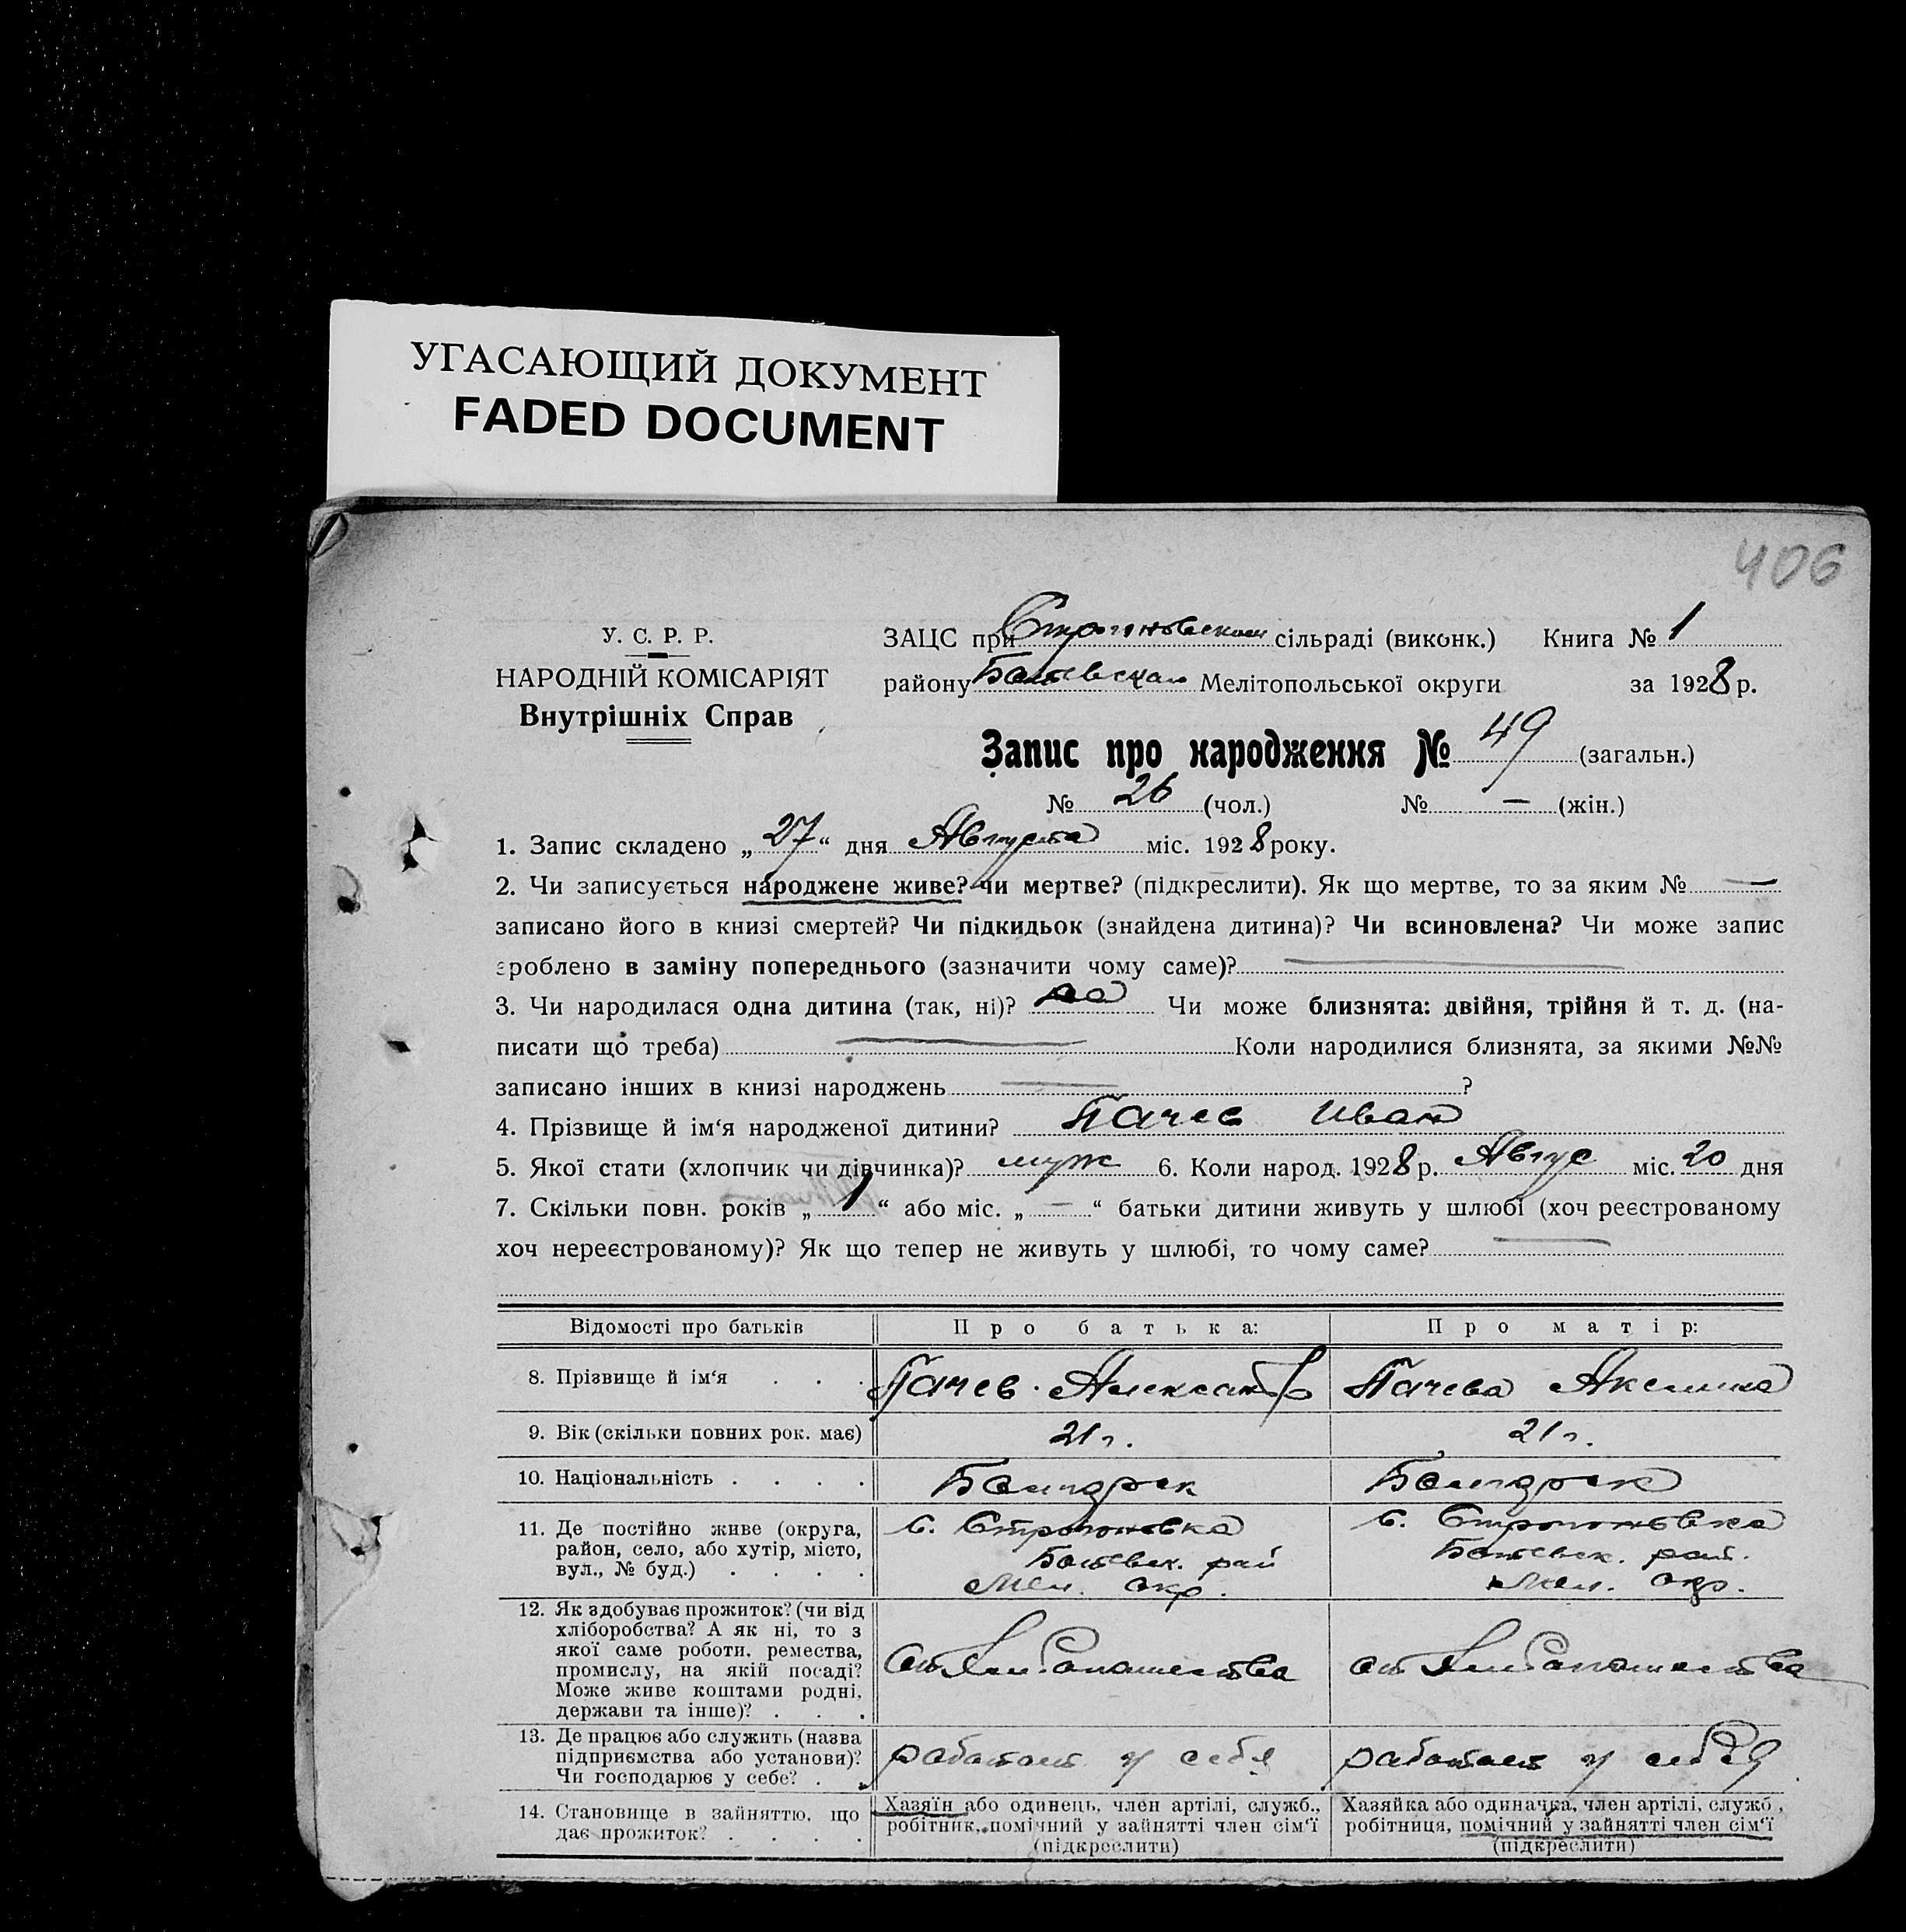 УГАСАЮЩИЙ ДОКУМЕНТ
FADED DOCUMENT
406
У. С. Р. Р.
НАРОДНІЙ КОМІСАРІЯТ
Внутрішніх Справ
ЗАЦС при Строгоновском сільраді (виконк.) Книга № 1
району Ботевском Мелітопольської округи за 1928 р.
Запис про народження № 49 (загальн.)
№ 26 (чол.) № — (жін.)
1. Запис складено „27“ дня Августа міс. 1928 року.
2. Чи записується народжене живе? чи мертве? (підкреслити). Як що мертве, то за яким № —
записано його в книзі смертей? Чи підкидьок (знайдена дитина)? Чи всиновлена? Чи може запис
зроблено в заміну попереднього (зазначити чому саме)? —
3. Чи народилася одна дитина (так, ні)? да Чи може близнята: двійня, трійня й т. д. (на-
писати що треба) — Коли народилися близнята, за якими №№
записано інших в книзі народжень — ?
4. Прізвище й ім‘я народженої дитини? Пачев Иван
5. Якої стати (хлопчик чи дівчинка)? муж 6. Коли народ. 1928 р. Авгус міс. 20 дня
7. Скільки повн. років „1“ або міс. „—“ батьки дитини живуть у шлюбі (хоч реєстрованому
хоч нереєстрованому)? Як що тепер не живуть у шлюбі, то чому саме? —
Відомості про батьків Про батька: Про матір:
8. Прізвище й ім‘я . . . Пачев Александр Пачева Акелина
9. Вік (скільки повних рок. має) 21 г. 21 г.
10. Національність . . . . Болгарск Болгарск
11. Де постійно живе (округа, с. Строгоновка с. Строгоновка
район, село, або хутір, місто, Ботевск. рай Ботевск. рай.
вул., № буд.) . . . . Мел. окр. Мел. окр.
12. Як здобуває прожиток? (чи від
хліборобства? А як ні, то з
якої саме роботи, ремества,
промислу, на якій посаді? от хлебопашества от хлебопашества
Може живе коштами родні,
держави та інше)? . . .
13. Де працює або служить (назва
підприємства або установи)? работает у себя работает у себя
Чи господарює у себе? . .
14. Становище в зайняттю, що Хазяїн або одинець, член артілі, служб., Хазяйка або одиначка, член артілі, служб.,
дає прожиток? . . . . робітник, помічний у зайнятті член сім‘ї робітниця, помічний у зайнятті член сім‘ї
(підкреслити) (підкреслити)